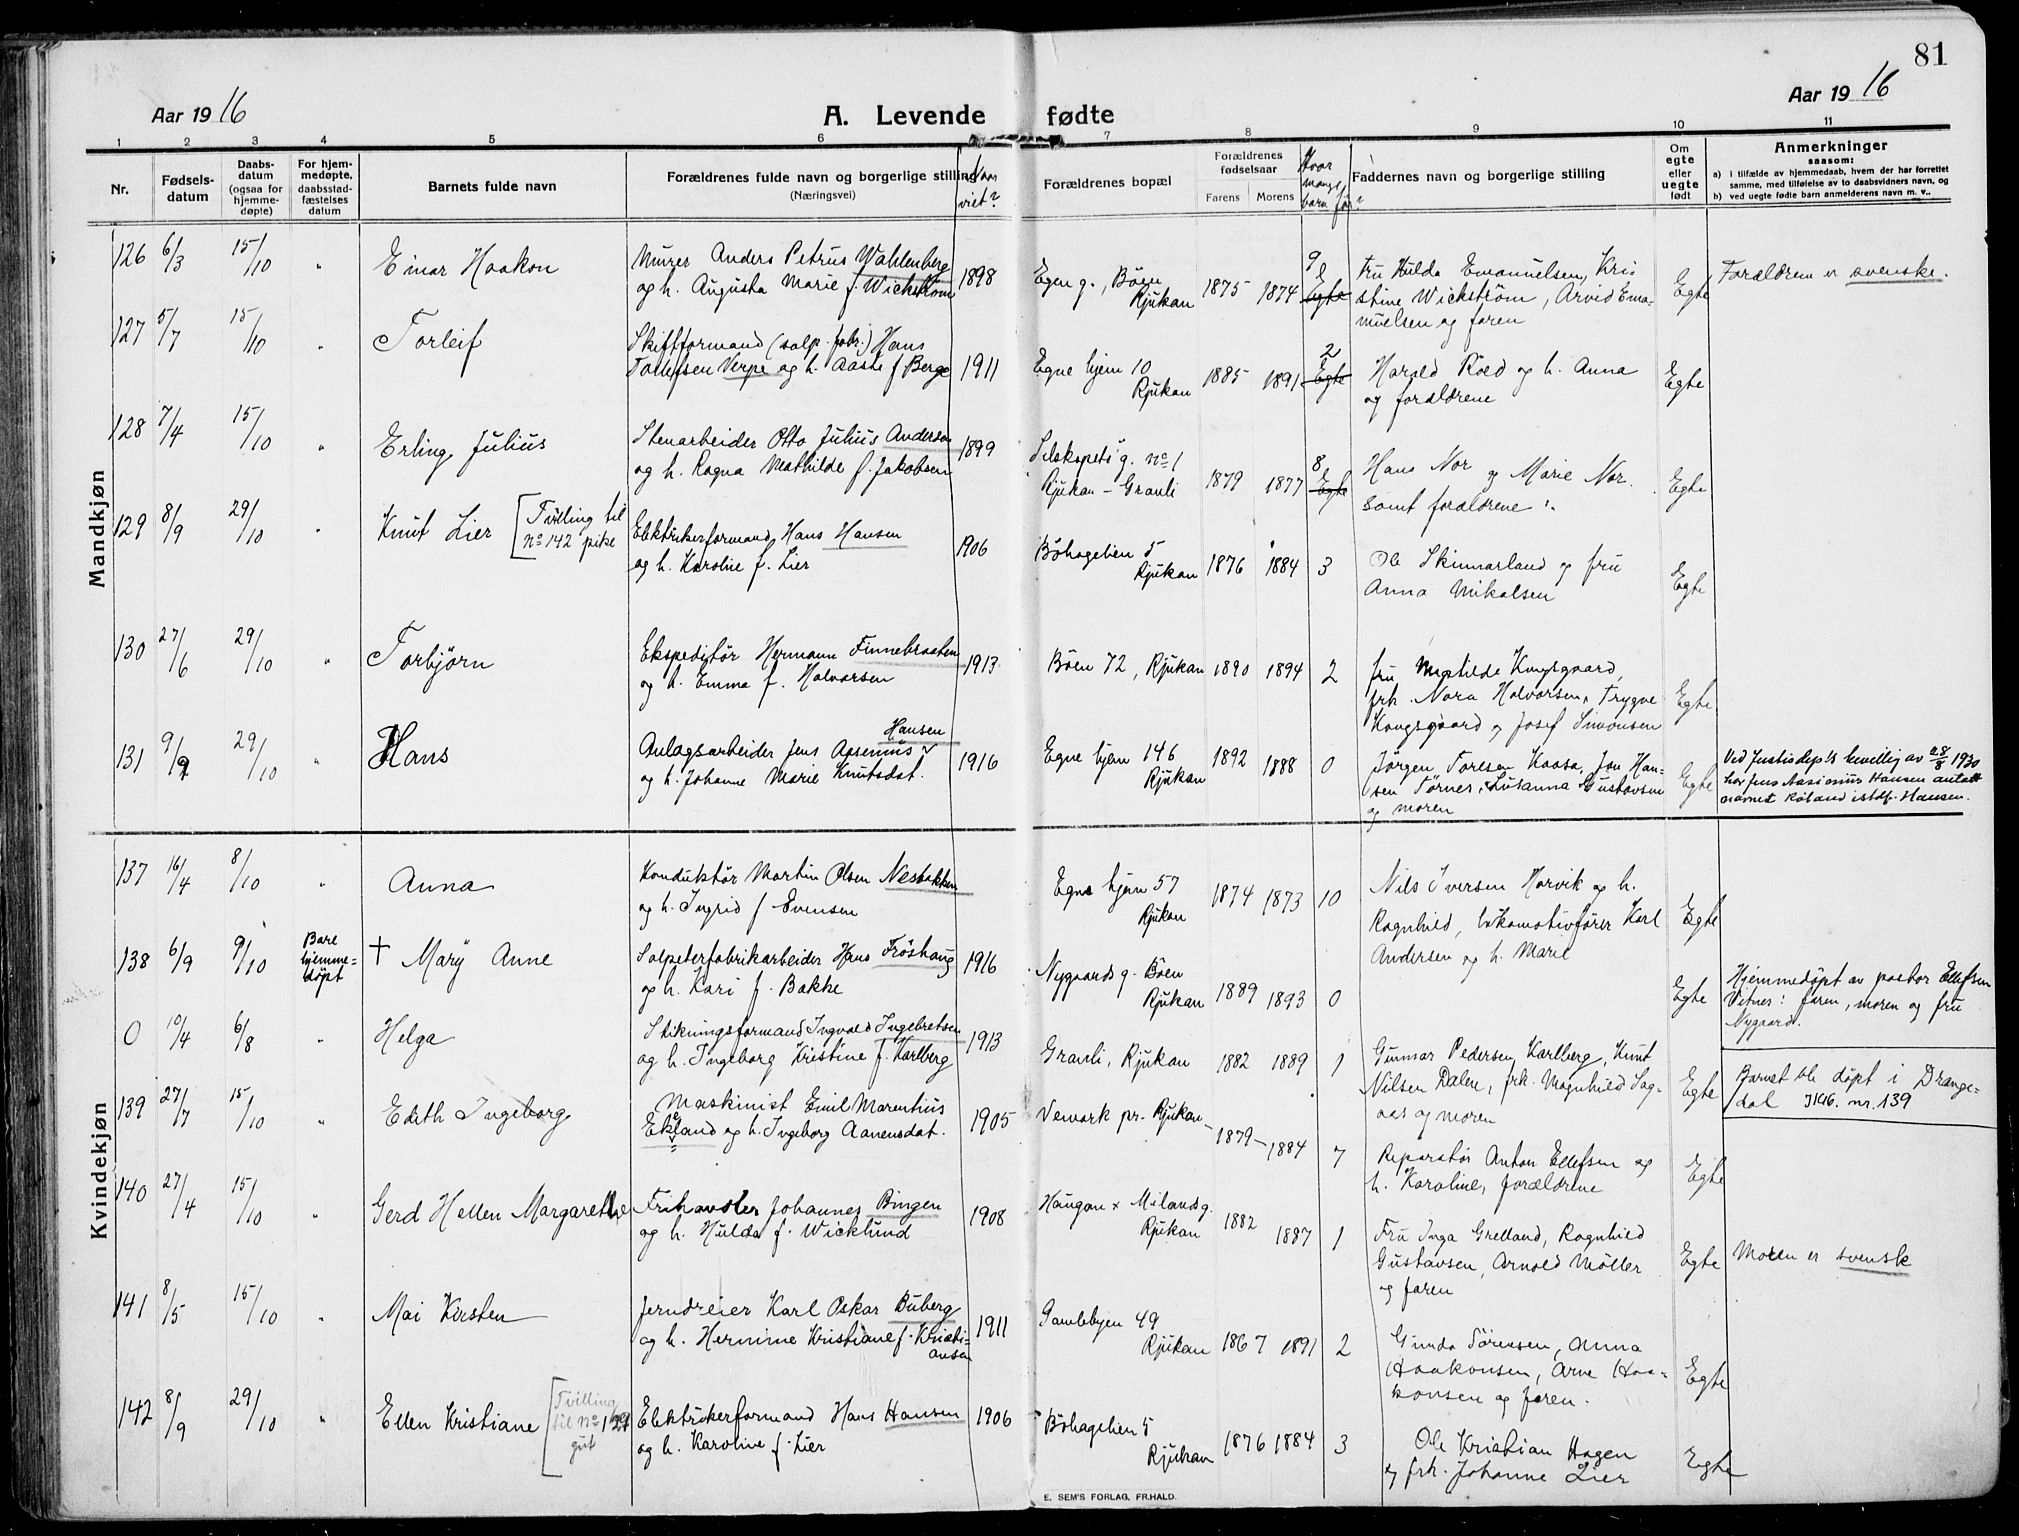 81
Aar 1916
A. Levende fødte
Aar 1916
1 2 3 4 5 6 7 8 9 10 11
Nr.
Fødsels-
datum
Daabs-
datum
(ogsaa for
hjemme-
døpte)
For hjem-
medøpte,
daabsstad-
fæstelses
datum
Barnets fulde navn
Forældrenes fulde navn og borgerlige stilling
(Næringsvei)
Naar
viet?
Forældrenes bopæl
Forældrenes
fødselsaar
Farens Morens
Hvor
mange
barn før?
Faddernes navn og borgerlige stilling
Om
egte
eller
uegte
født
Anmerkninger
saasom:
a) i tilfælde av hjemmedaab, hvem der har forrettet
samme, med tilføielse av to daabsvidners navn, og
b) ved uegte fødte barn anmelderens navn m. v.
Mandkjøn
126 6/3 15/10 " Einar Haakon
Murer Anders Petrus Wahlenberg
og h. Augusta Marie f. Wickstrøm
1898
Egen g., Bøen
Rjukan
1875 1874 9 Egte
Fru Hulda Emanuelsen, Kri
stine Wickstrøm, Arvid Ema-
nuelsen og faren
Egte
Forældrene er svenske.
127 5/7 15/10 " Torleif
Skiftformand (salp. fabr.) Hans
Tollefsen Verpe og h. Aaste f Berge
1911
Egne hjem 10
Rjukan
1885 1891 2 Egte
Harald Roed og h. Anna
og forældrene
Egte
128 7/4 15/10 " Erling Julius
Stenarbeider Otto Julius Anderson
og h. Ragna Mathilde f. Jakobsen
1899
Selskapets g. no 1
Rjukan - Grauli
1879 1877 8 Egte
Hans Nor og Marie Nor.
samt forældrene :.
Egte
129 8/9 29/10 " Knut Lier [Tvilling til
no 142 pike
Elektrikerformand Hans Hansen
og h. Karoline f. Lier
1906
Bøhagelien 5
Rjukan
1876 1884 3
Ole Skinnarland og fru
Anna Mikalsen
Egte
130 27/6 29/10 " Torbjørn
Ekspeditør Hermann Finnebraaten
og h. Emma f. Halvorsen
1913
Bøen 72, Rjukan 1890 1894 2
fru Matilde Kongsgaard,
frk. Nora Halvorsen, Trygve
Kongsgaard og Josef Simonsen
Egte
131 9/9 29/10 " Hans
Hansen
Anlagsarbeider Jens Asenius
og h. Johanne Marie Knutsdat.
1916
Egne hjem 146
Rjukan
1892 1888 0
Jørgen Toresen Kaasa, Jon Han-
sen Tørnes, Susanna Gustavsen
og moren
Egte
Ved Justisdep.ts bevillig av 28/8 1930
har Jens Assenius Hansen antatt
navnet Røland istdf. Hansen.
Kvindekjøn
137 16/4 8/10 " Anna
Konduktør Martin Olsen Nesbakken
og h. Ingrid f Evensen
Egne hjem 57
Rjukan
1874 1873 10
Nils Iversen Horvik og h.
Ragnhild, lokomotivfører Karl
Andersen og h. Marie
Egte
138 6/9 9/10 Bare
hjemme-
døpt
† Mary Anne
Salpeterfabrikarbeider Hans Frøshaug
og h. Kari f. Bakke
1916
Nygaards g. Bøen
Rjukan
1889 1893 0
Egte
Hjemmedøpt av pastor Ellefsen
Vitner: faren, moren og fru
Nygaard.
0 10/4 6/8 " Helga
Stikningsformand Ingvald Ingebretsen
og h. Ingeborg Kristine f. Karlberg
1913
Grauli, Rjukan 1882 1889 1
Gunnar Pedersen Karlberg, Knut
Nilsen Dalen, frk. Magnhild Sag-
aas og moren
Egte
Barnet ble døpt i Drange-
dal 1916. nr. 139
139 27/7 15/10 " Edith Ingeborg
Maskinist Emil Marentius
Ekland og h. Ingeborg Aanensdat.
1905
Vemork pr. Rjukan
1879 1884 7
Reparatør Anton Ellefsen og
h. Karoline, forældrene
Egte
140 27/4 15/10 " Gerd Hellen Margarethe
Frihandler Johannes Bingen
og h. Hulda f. Wicklund
1908
Haugan x Milandsg.
Rjukan
1882 1887 1
Fru Inga Grelland, Ragnhild
Gustavsen, Arnold Møller
og faren
Egte
Moren er svensk
141 8/5 15/10 " Mai Kirsten
Jerndreier Karl Oskar Buberg
og h. Hermine Kristiane f. Kristi-
ansen
1911
Gamlebyen 49
Rjukan
1867 1891 2
Gunda Sørensen, Anna
Haakonsen, Arne Haa-
konsen og faren.
Egte
142 8/9 29/10 " Ellen Kristiane [Tvilling
til no 129
gut
Elektrikerformand Hans Hansen
og h. Karoline f. Lier
1906
Bøhagelien 5
Rjukan
1876 1884 3
Ole Kristian Hagen
og frk. Johanne Lier
Egte
E. SEM'S FORLAG, FR.HALD.